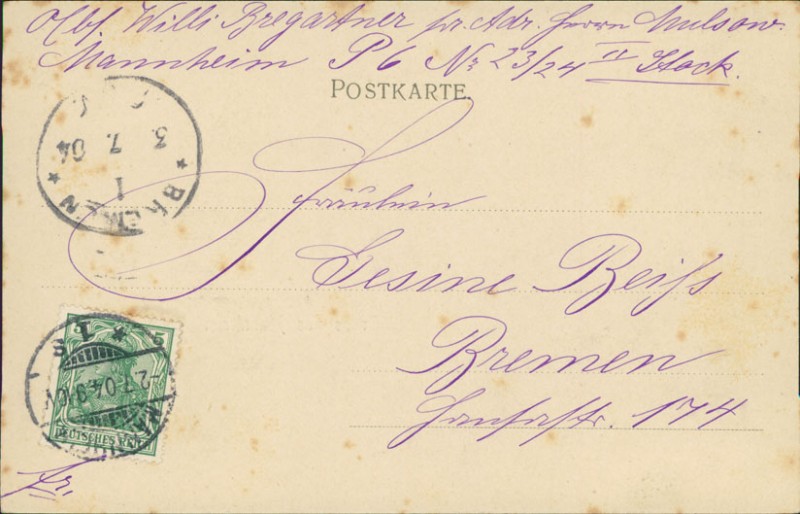 Abs. Willi Bregartner pr. Adr. Herrn Mulsow.
Mannheim P 6 No 23/24 II Stock.
POSTKARTE.
3. 7. 04
1
* BREMEN *
Fräulein
Gesine Beiß
Bremen
Hansastr. 174
* 1 S
5
2.7.04.9-10V
DEUTSCHES REICH
fr.